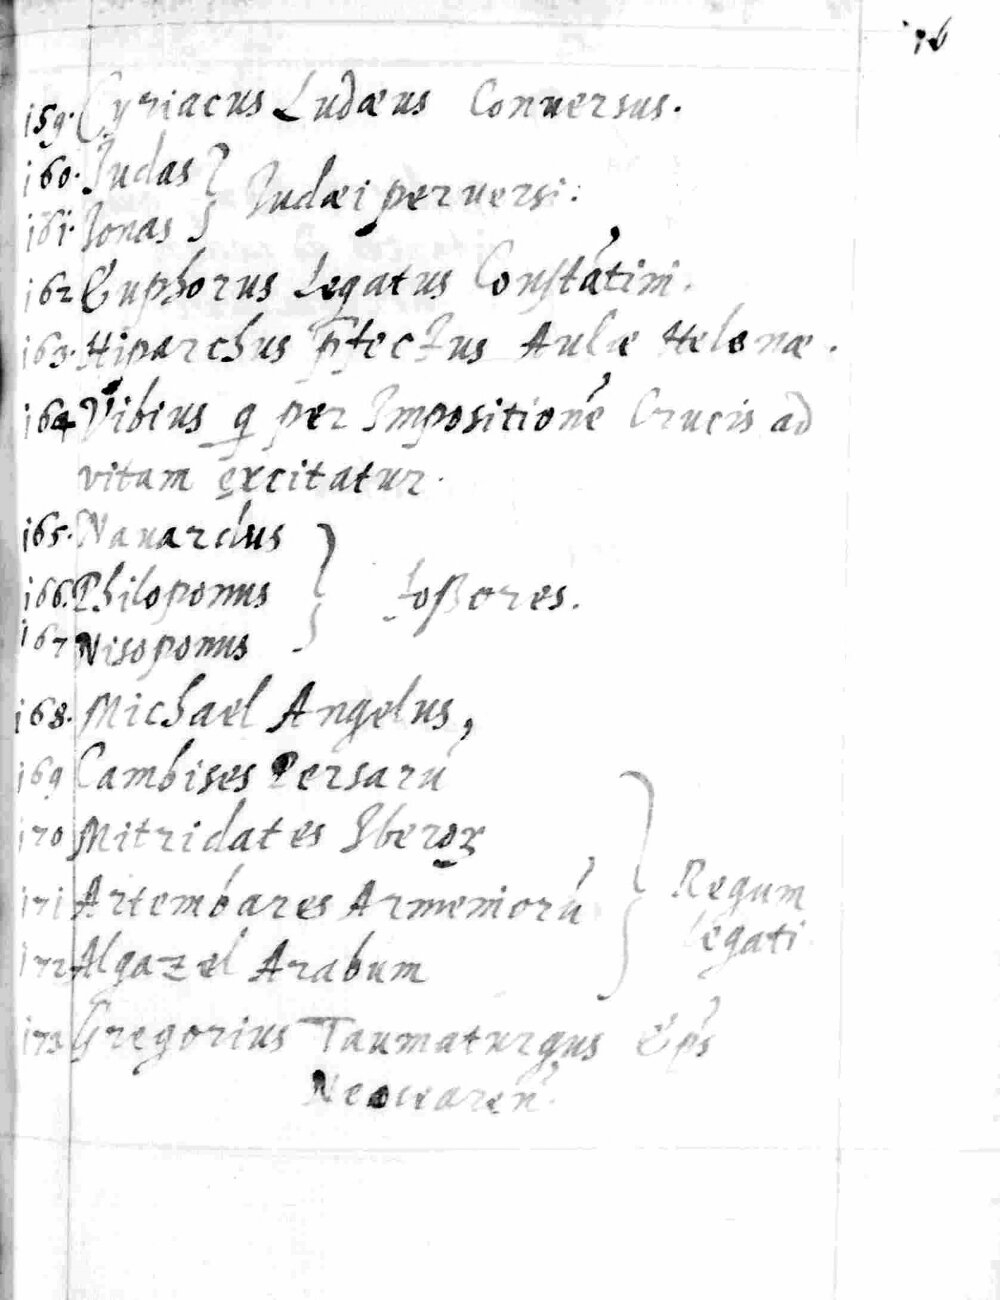 16
159. Cyriacus Iudæus Conuersus.
160. Judas } Judæi peruersi.
161. Jonas }
162 Euphorus Legatus Constãtini.
163. Hiparchus p̃fectus Aulæ Helenæ.
164 Vibius q per Impositionẽ Crucis ad
vitam excitatur.
165. Nauardus }
166. Philoponus } Foßores.
167 Nisoponus }
168. Michael Angelus,
169 Cambises Persarũ }
170 Mitridates Iberoꝝ
171 Artembares Armeniorũ } Regum
172 Algazel Arabum } legati
173 Gregorius Taumaturgus Ep̃s
Neocearen̄.